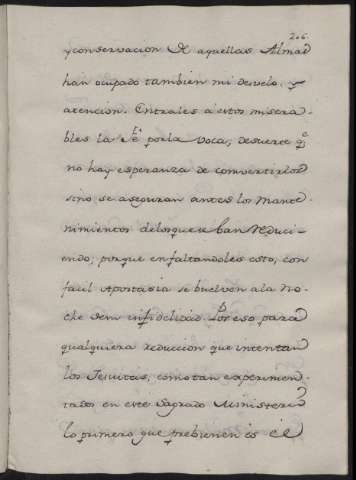 206
y conservacion de aquellas Almas
han ocupado tambien mi desvelo, y
atencion. Entrales a estos misera-
bles la fe por la voca, de suerte q.e
no hay esperanza de convertirlos
sino se aseguran antes los mante-
nimientos delos que se ban reduci-
endo; porque en faltandoles esto, con
facil Apostasia se buelven a la no-
che de su infidelidad. Por eso para
qualquiera reduccion que intentan
los Jesuitas, como tan experimen-
tados en este Sagrado Ministerio
lo primero que prebienen es el